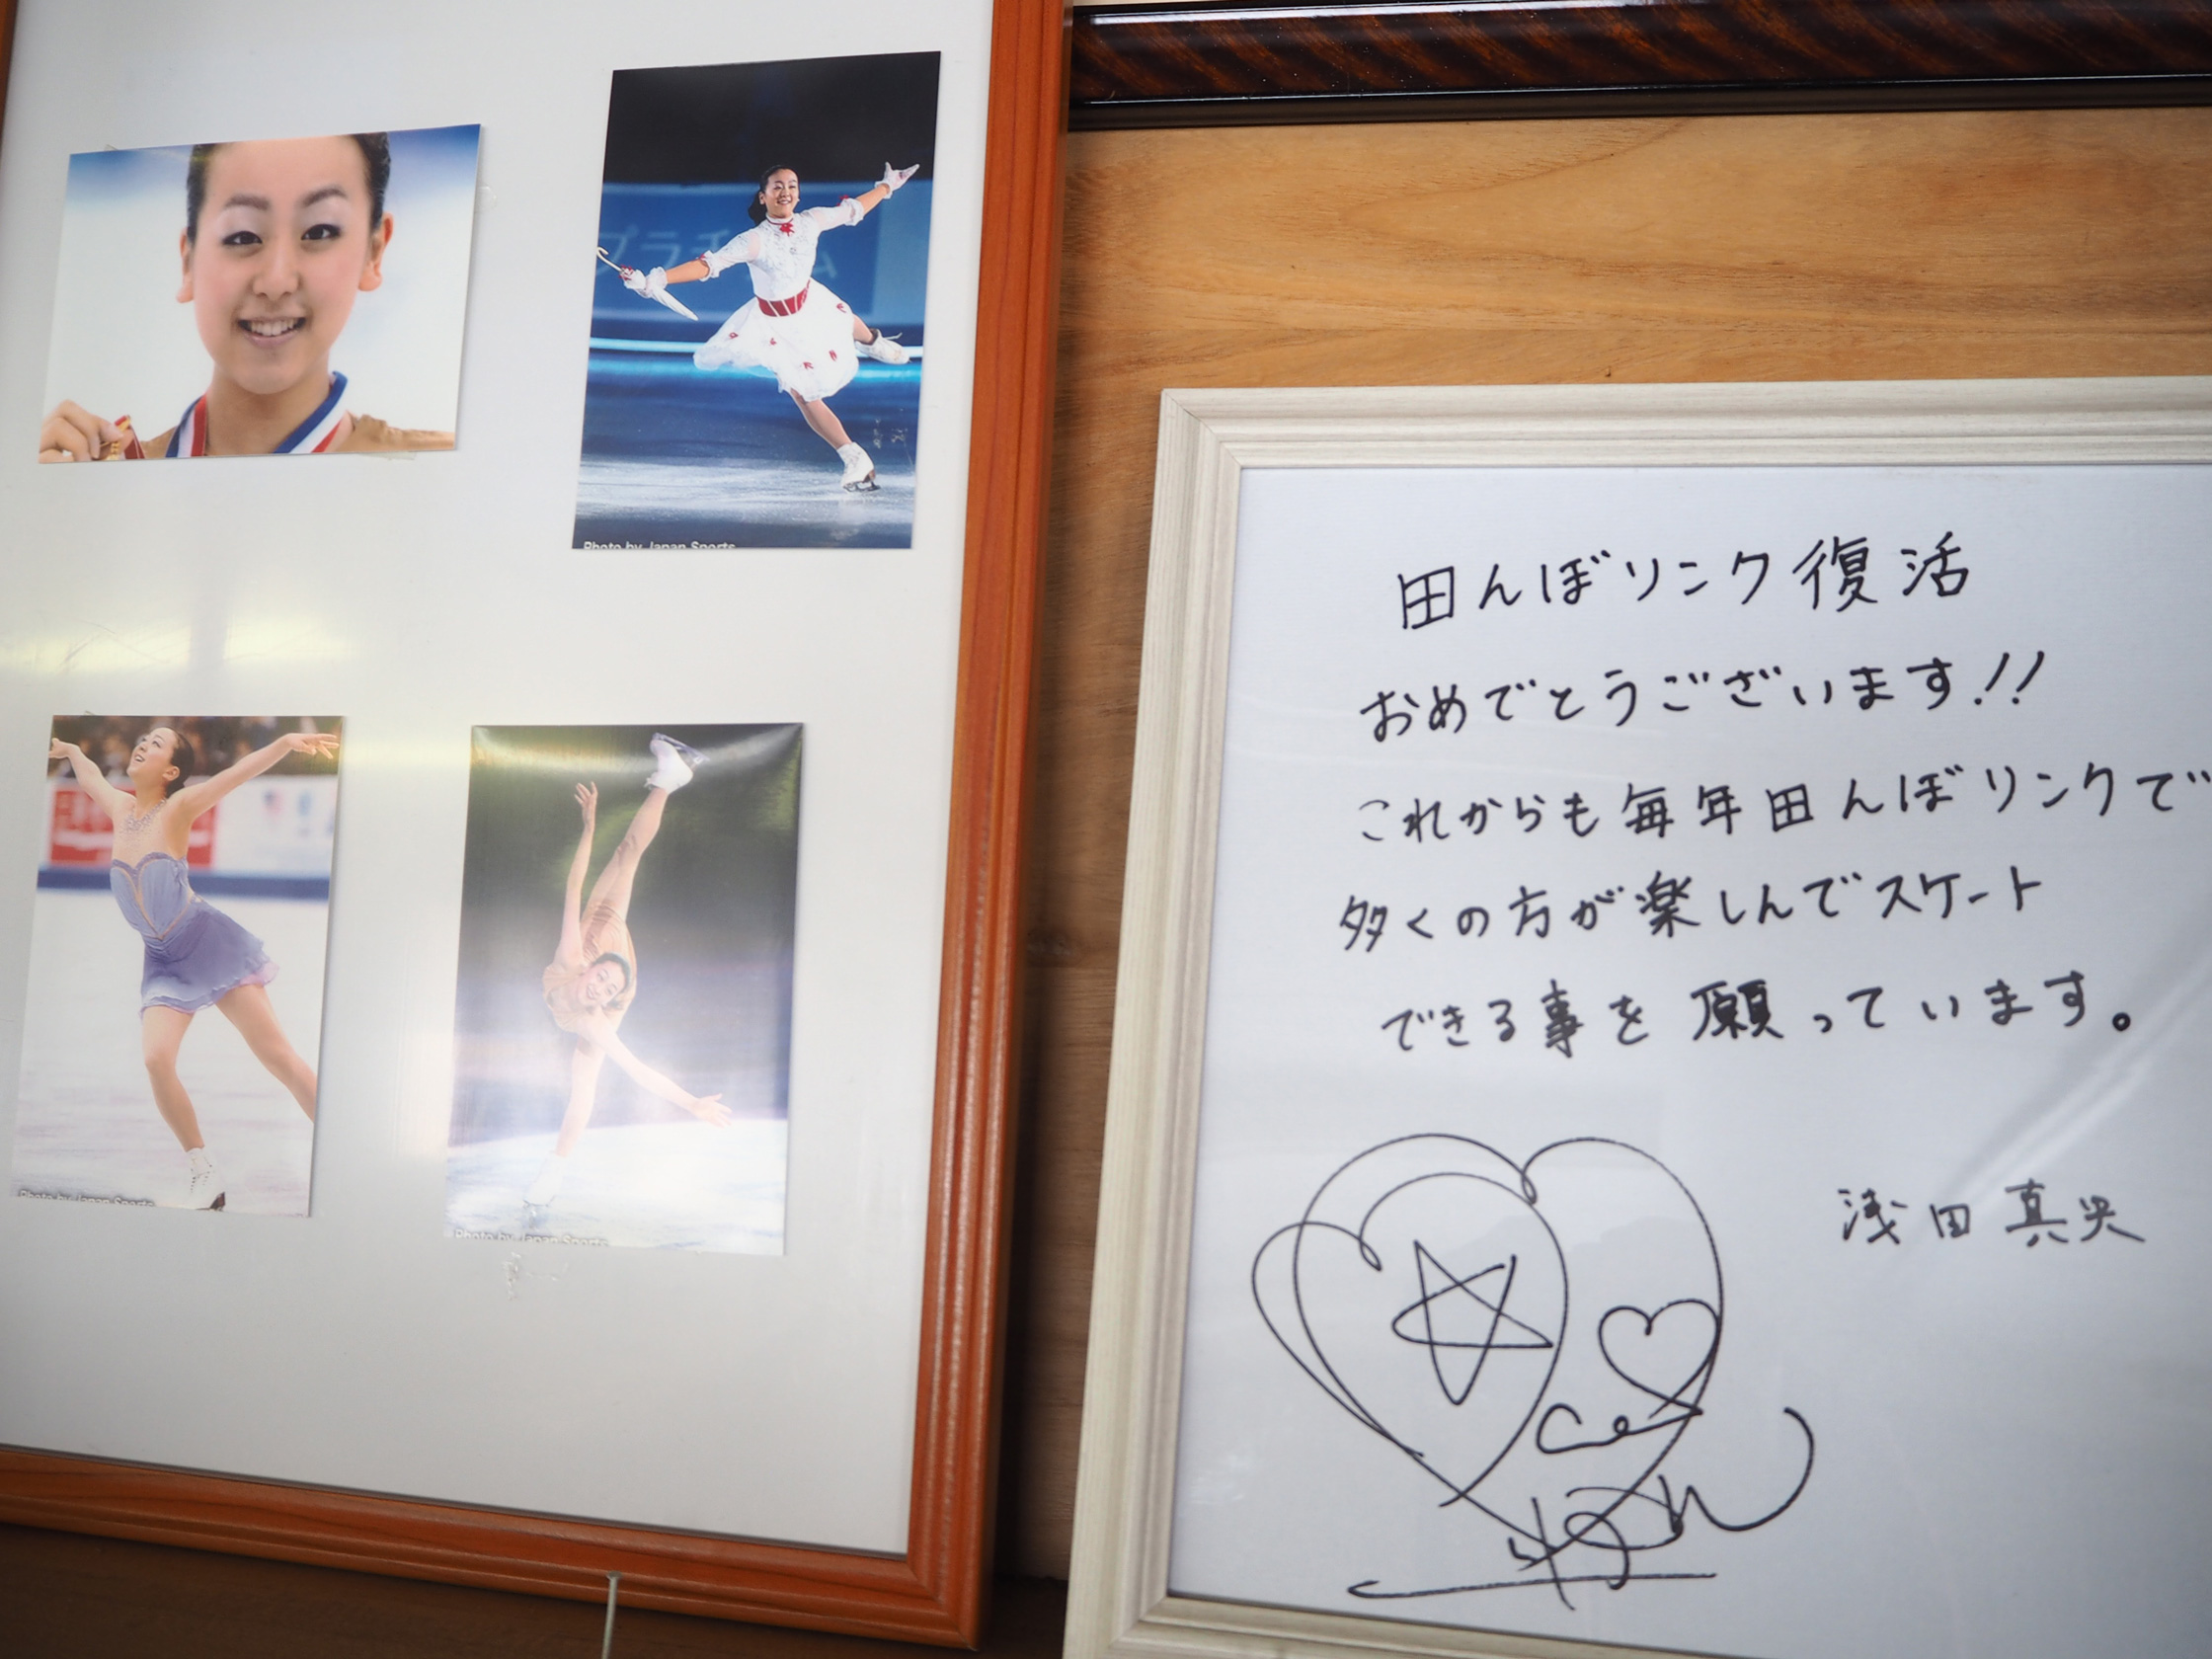 プラチ
ム
Photo by Japan Sports
Photo by Japan Sports
Photo by Japan Sports
田んぼリンク復活
おめでとうございます!!
これからも毎年田んぼリンクで
多くの方が楽しんでスケート
できる事を願っています。
浅田真央